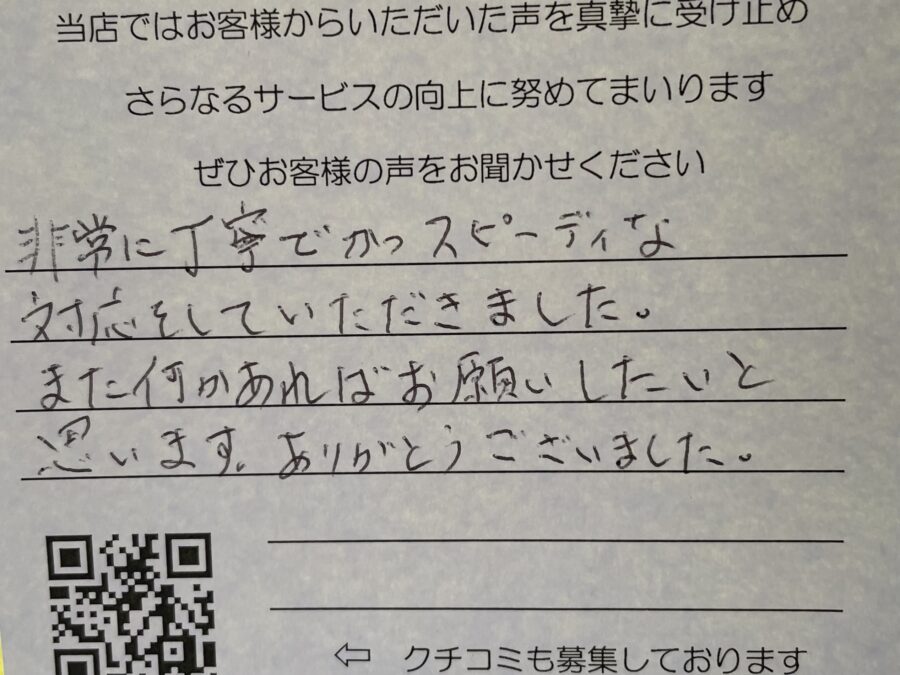 当店ではお客様からいただいた声を真摯に受け止め
さらなるサービスの向上に努めてまいります
ぜひお客様の声をお聞かせください
非常に丁寧でかつスピーディな
対応をしていただきました。
また何かあればお願いしたいと
思います。ありがとうございました。
⇦ クチコミも募集しております